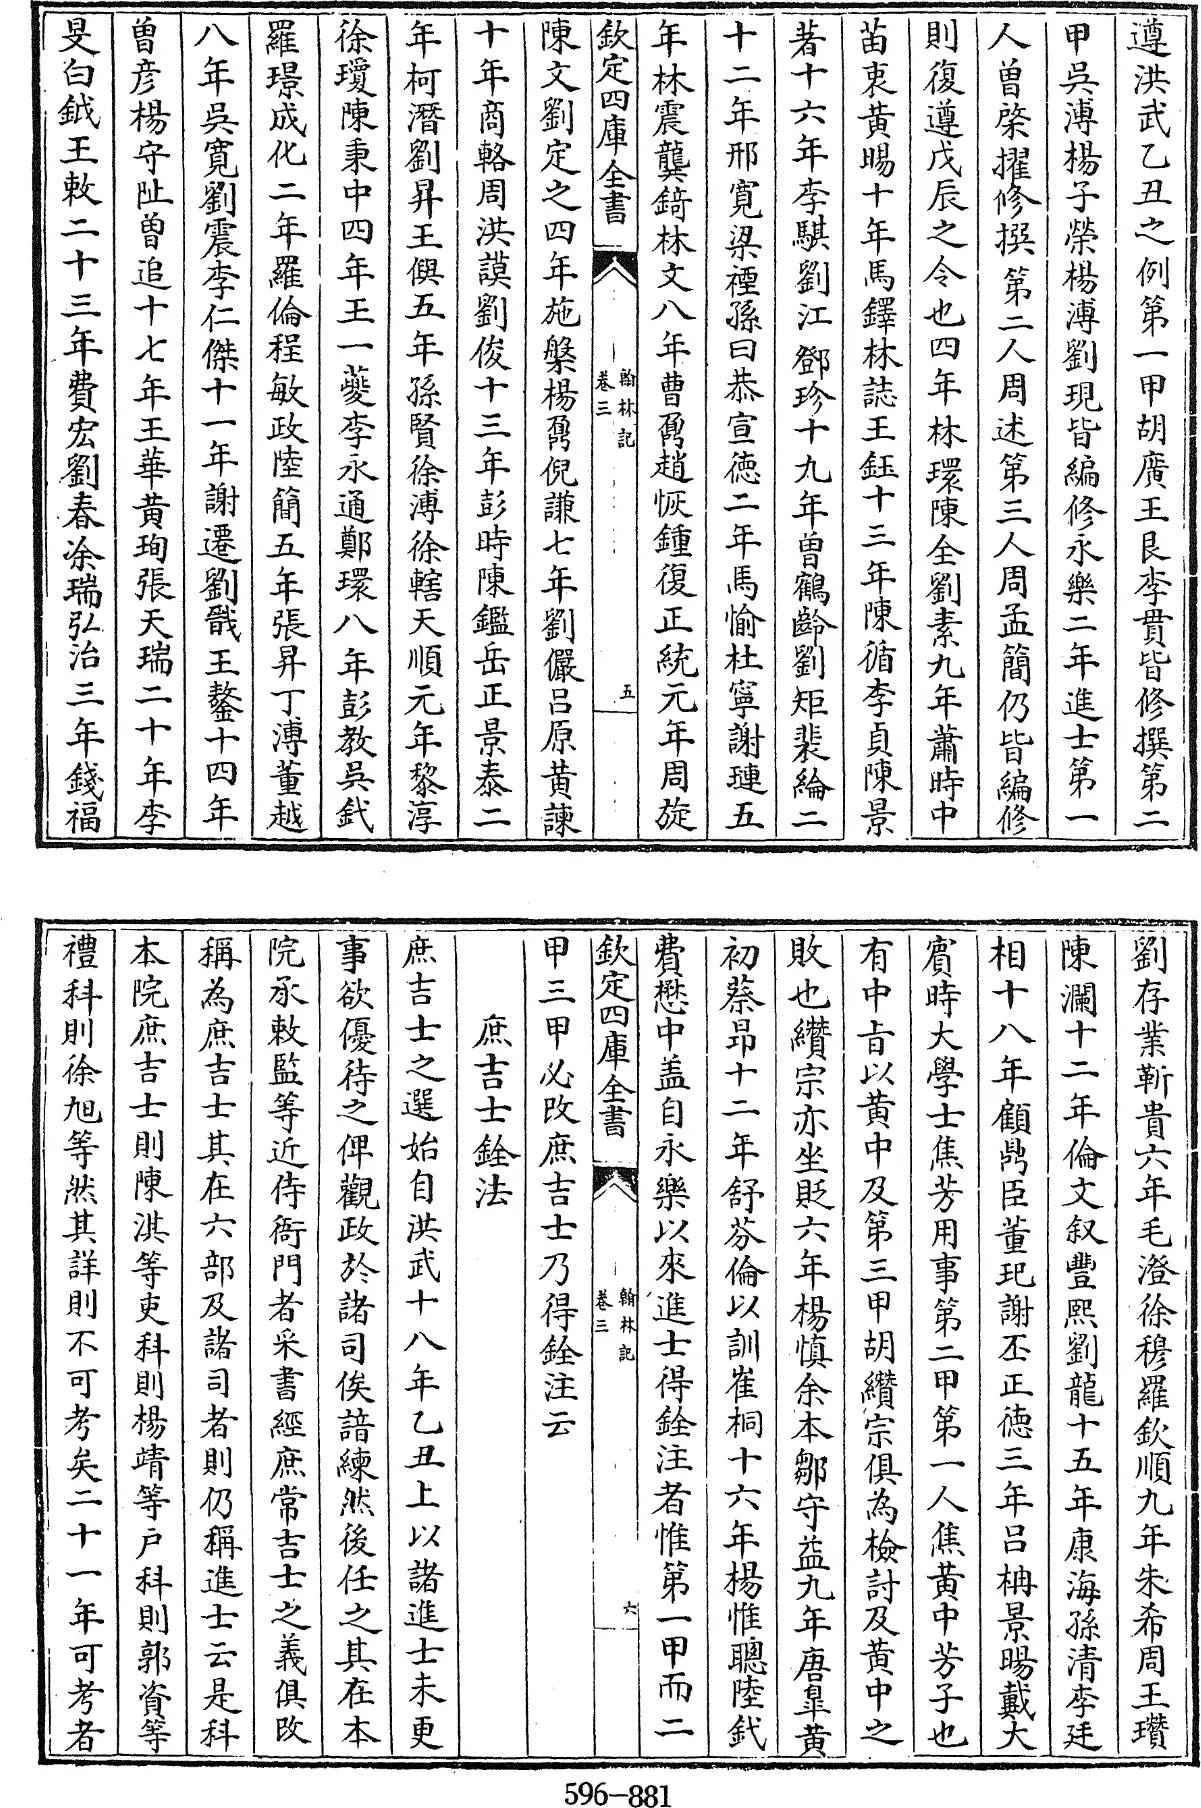 遵洪武乙丑之例第一甲胡廣王艮李貫皆修撰第二
甲吳溥楊子榮楊溥劉現皆編修永樂二年進士第一
人曾棨擢修撰第二人周述第三人周孟簡仍皆編修
則復遵戊辰之令也四年林環陳全劉素九年蕭時中
苗衷黃暘十年馬鐸林誌王鈺十三年陳循李貞陳景
著十六年李騏劉江鄧珍十九年曾鶴齡劉矩裴綸二
十二年邢寬梁禋孫曰恭宣德二年馬愉杜寧謝璉五
年林震龔錡林文八年曹鼐趙恢鍾復正統元年周旋
欽定四庫全書
翰林記
卷三
五
陳文劉定之四年施槃楊鼐倪謙七年劉儼呂原黃諫
十年商輅周洪謨劉俊十三年彭時陳鑑岳正景泰二
年柯潛劉昇王㒜五年孫賢徐溥徐轄天順元年黎淳
徐瓊陳秉中四年王一夔李永通鄭環八年彭教吳釴
羅璟成化二年羅倫程敏政陸簡五年張昇丁溥董越
八年吳寬劉震李仁傑十一年謝遷劉戩王鏊十四年
曾彦楊守阯曾追十七年王華黃珣張天瑞二十年李
旻白鉞王敕二十三年費宏劉春凃瑞弘治三年錢福
劉存業靳貴六年毛澄徐穆羅欽順九年朱希周王瓚
陳瀾十二年倫文叙豐熙劉龍十五年康海孫清李廷
相十八年顧鼎臣董玘謝丕正德三年呂柟景暘戴大
賓時大學士焦芳用事第二甲第一人焦黃中芳子也
有中旨以黃中及第三甲胡纘宗俱為檢討及黃中之
敗也纘宗亦坐貶六年楊慎余本鄒守益九年唐臯黃
初蔡昂十二年舒芬倫以訓崔桐十六年楊惟聰陸釴
費懋中盖自永樂以來進士得銓注者惟第一甲而二
欽定四庫全書
翰林記
卷三
六
甲三甲必改庶吉士乃得銓注云
庶吉士銓法
庶吉士之選始自洪武十八年乙丑上以諸進士未更
事欲優待之俾觀政於諸司俟諳練然後任之其在本
院承敕監等近侍衙門者采書經庶常吉士之義俱改
稱為庶吉士其在六部及諸司者則仍稱進士云是科
本院庶吉士則陳淇等吏科則楊靖等户科則郭資等
禮科則徐旭等然其詳則不可考矣二十一年可考者
596-881